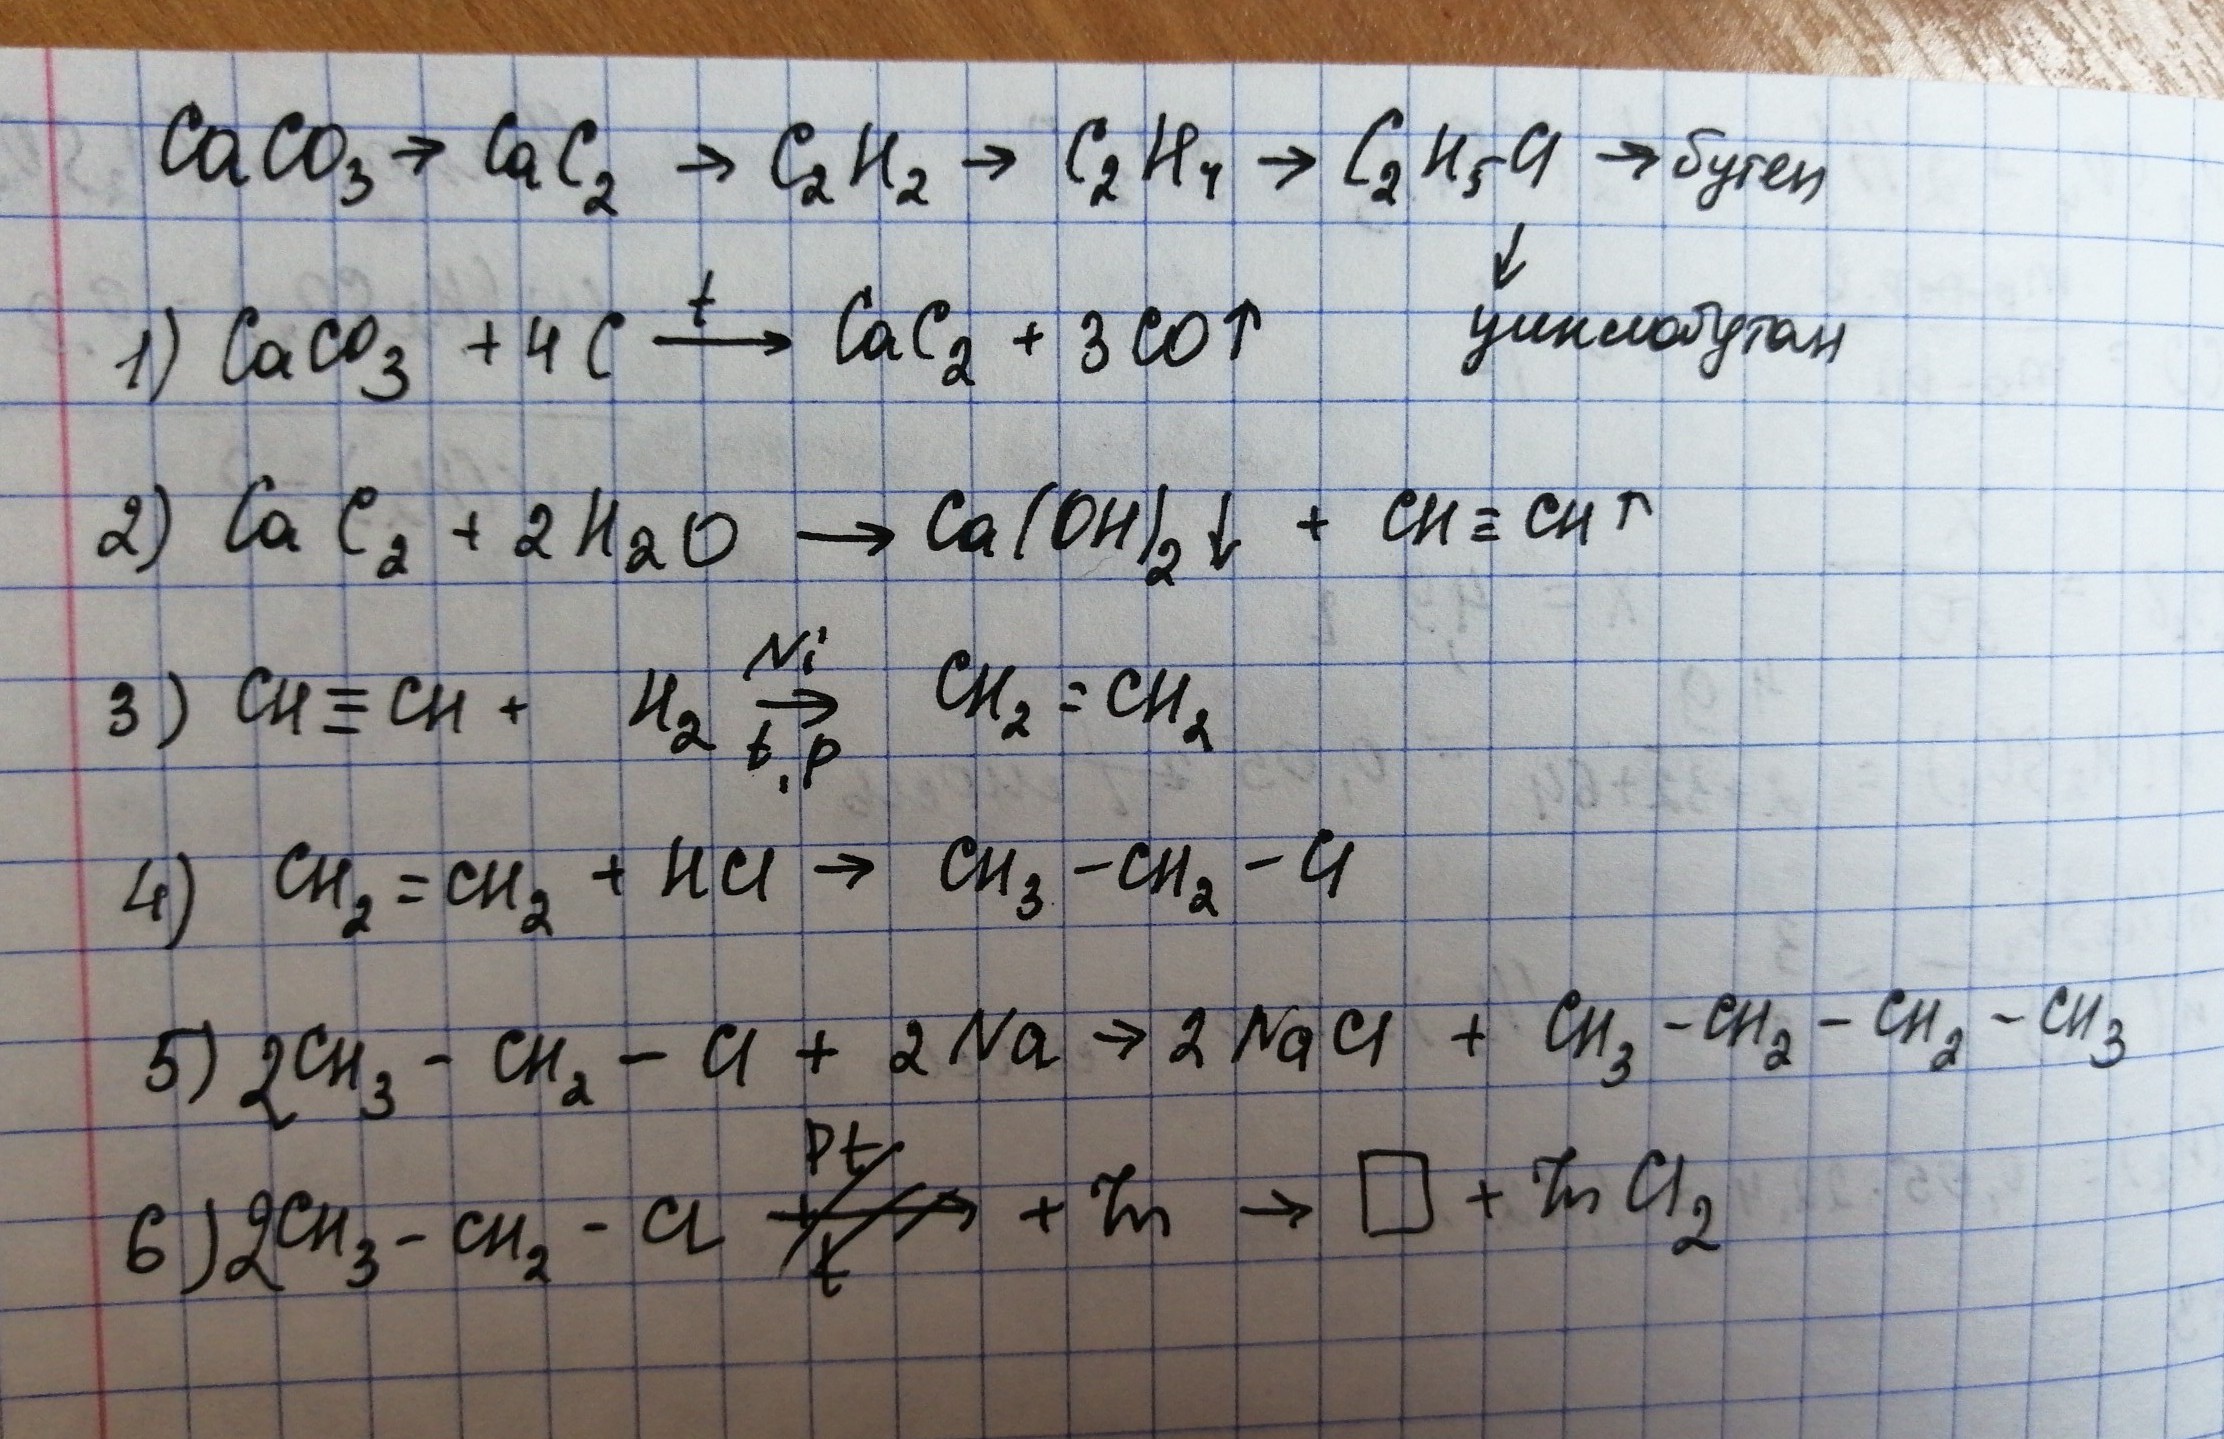 CaCO₃ → CaC₂ → C₂H₂ → C₂H₄ → C₂H₅-Cl → бутен
↓
циклобутан
1) CaCO₃ + 4C →(t) CaC₂ + 3CO↑
2) CaC₂ + 2H₂O → Ca(OH)₂↓ + CH≡CH↑
3) CH≡CH + H₂ →(Ni; t, p) CH₂=CH₂
4) CH₂=CH₂ + HCl → CH₃-CH₂-Cl
5) 2CH₃-CH₂-Cl + 2Na → 2NaCl + CH₃-CH₂-CH₂-CH₃
6) 2CH₃-CH₂-Cl →(Pt; t) + Zn → □ + ZnCl₂